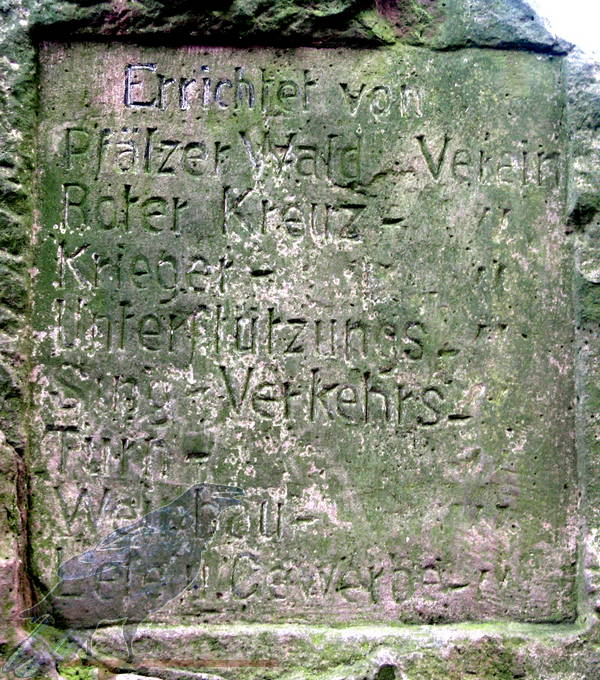 Errichtet von
Pfälzer Wald - Verein
Roter Kreuz - "
Krieger - "
Unterstützungs - "
Sing - Verkehrs - "
Turn - "
Weinbau - "
Lese u Gewerbe - "